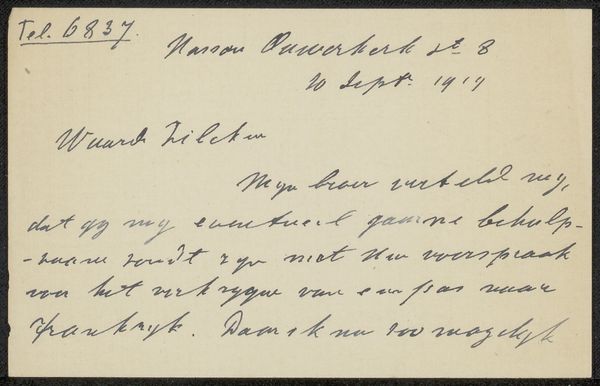 Tel. 6837.
Nassau Ouwerkerk st 8
10 Sept. 1917
Waarde Zilcken
Mijn broer verteld mij,
dat gij mij eventueel gaarne behulp-
-zaam zoudt zijn met Uw voorspraak
voor het verkrijgen van een pas naar
Frankrijk. Daar ik nu zoo mogelijk